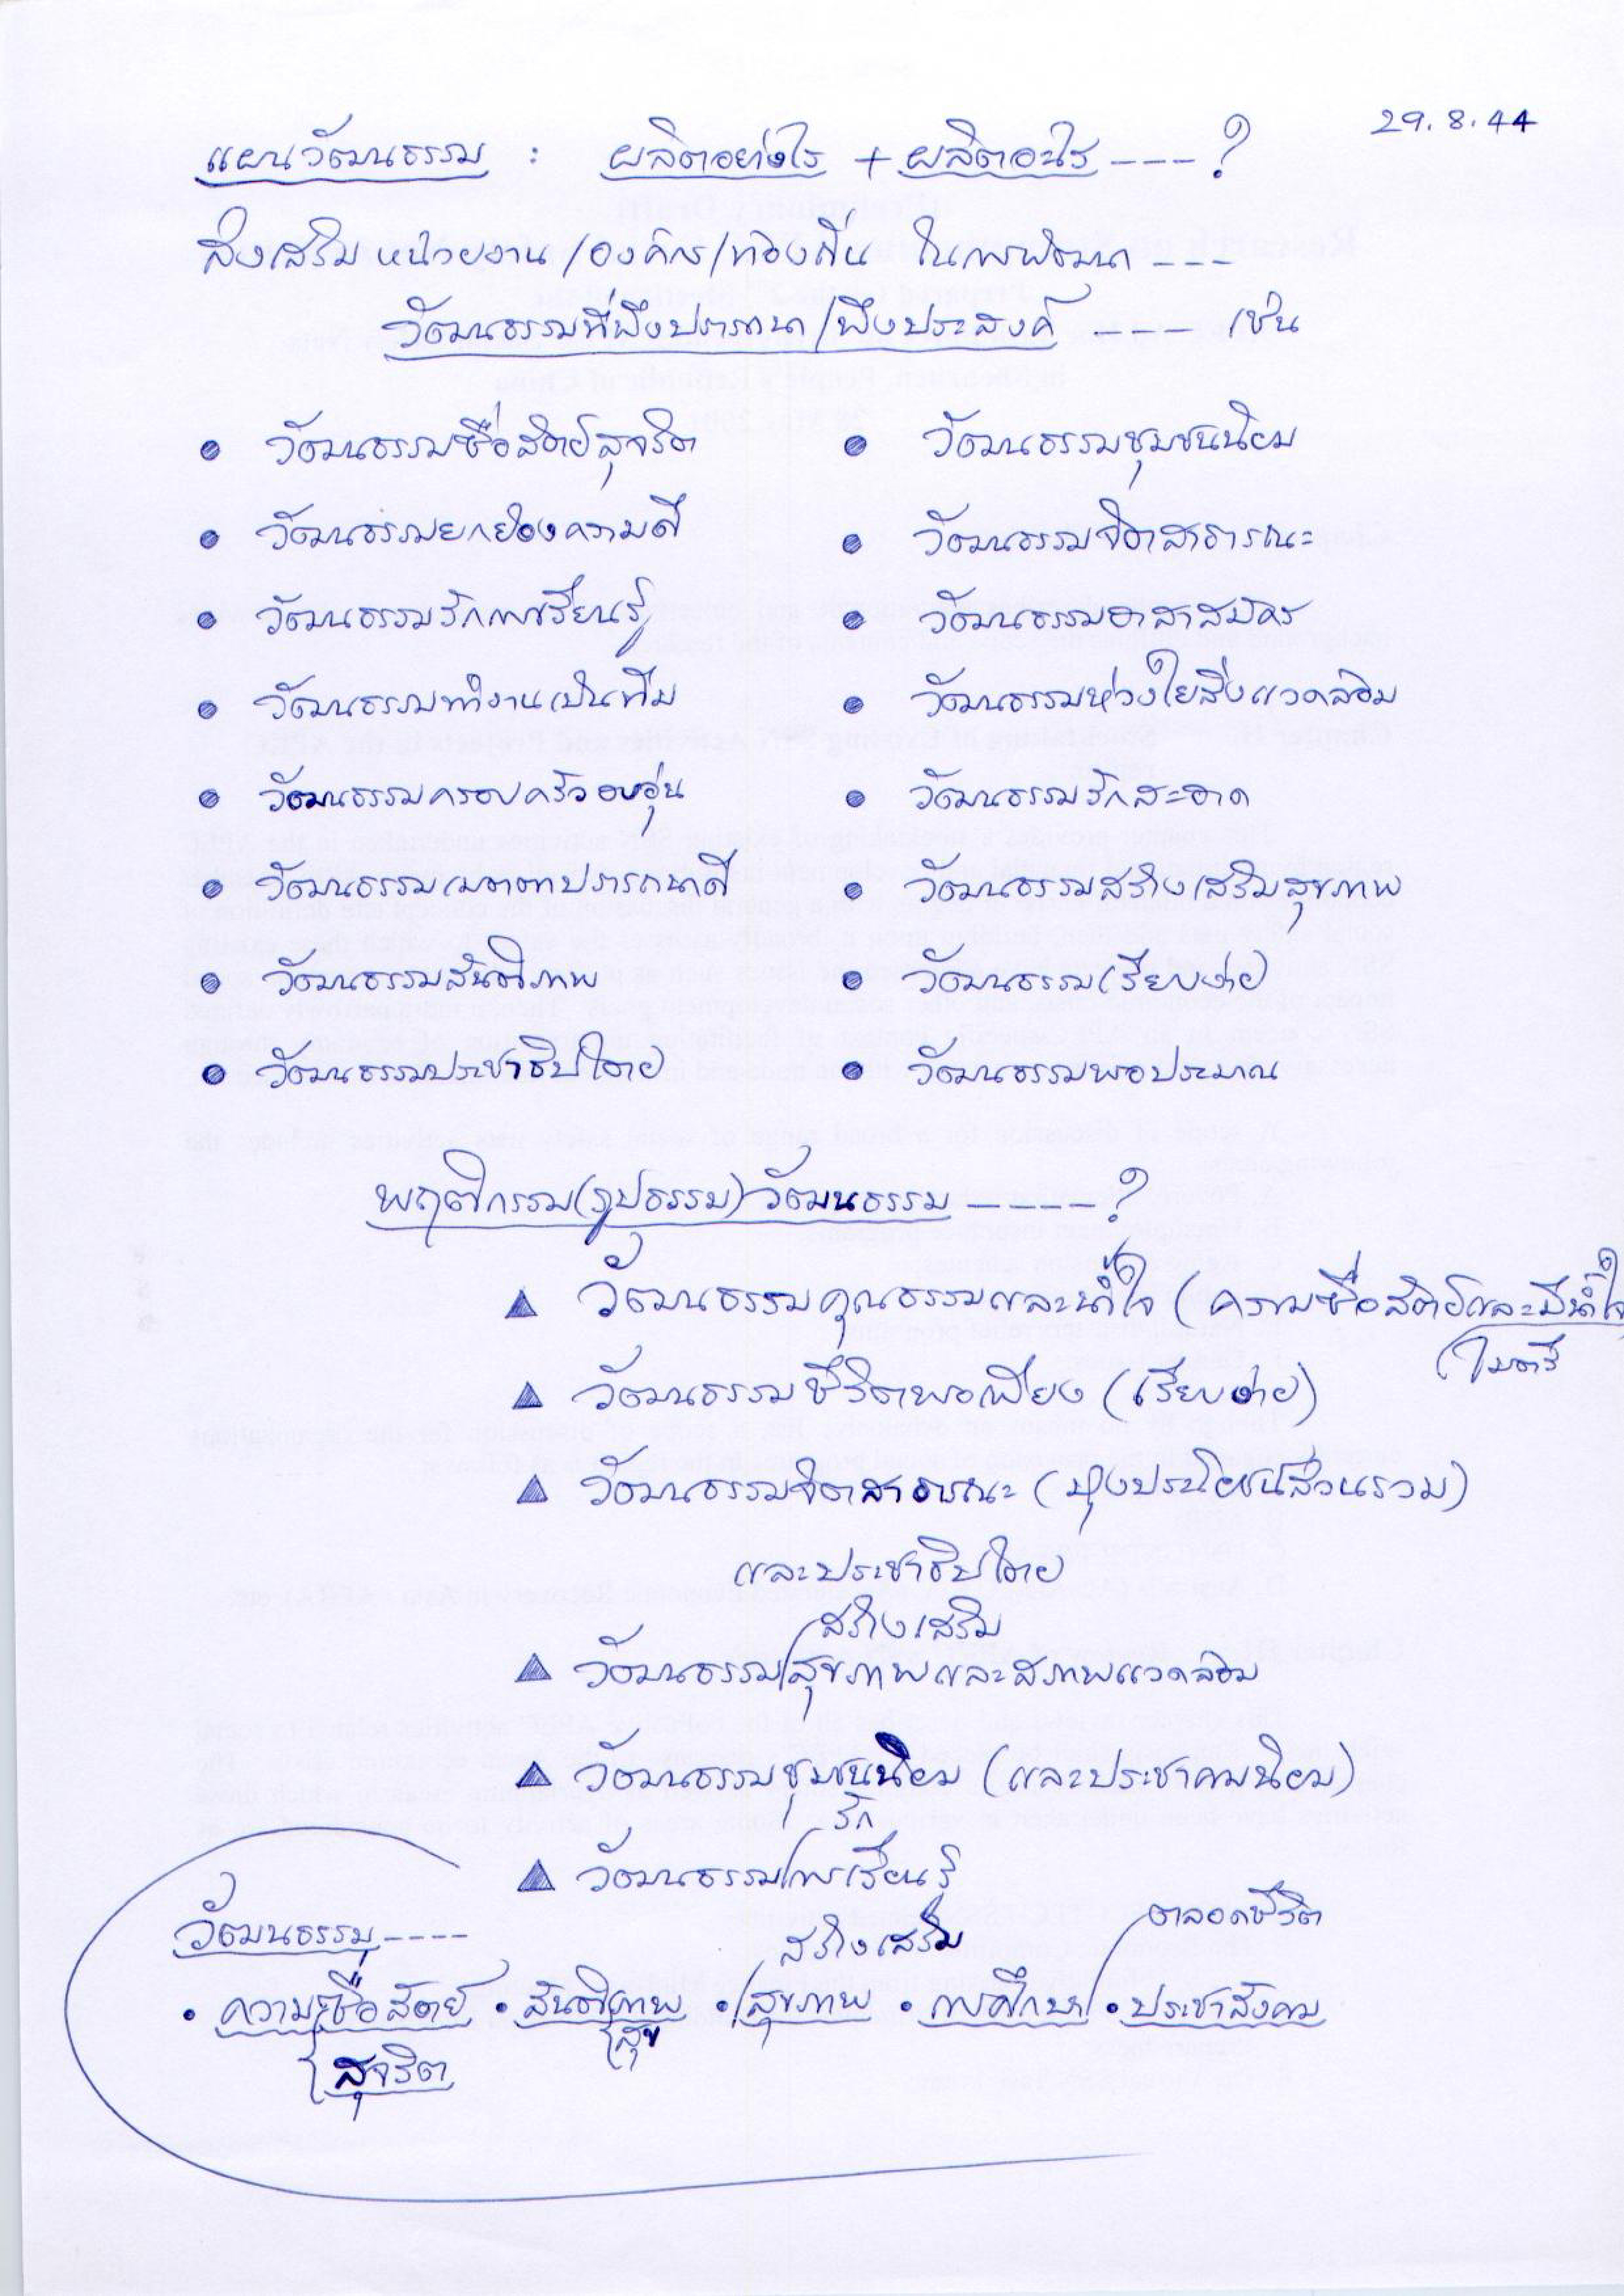 29.8.44
แผนวัฒนธรรม : ผลิตอย่างไร + ผลิตอะไร ----?
ส่งเสริมหน่วยงาน/องค์กร/ท้องถิ่น ในการพัฒนา ---
วัฒนธรรมที่พึงปรารถนา/พึงประสงค์ ---- เช่น
• วัฒนธรรมซื่อสัตย์สุจริต • วัฒนธรรมชุมชนนิยม
• วัฒนธรรมยกย่องความดี • วัฒนธรรมจิตสาธารณะ
• วัฒนธรรมรักการเรียนรู้ • วัฒนธรรมอาสาสมัคร
• วัฒนธรรมทำงานเป็นทีม • วัฒนธรรมห่วงใยสิ่งแวดล้อม
• วัฒนธรรมครอบครัวอบอุ่น • วัฒนธรรมรักสะอาด
• วัฒนธรรมเมตตาปรารถนาดี • วัฒนธรรมสร้างเสริมสุขภาพ
• วัฒนธรรมสันติภาพ • วัฒนธรรมเรียบง่าย
• วัฒนธรรมประชาธิปไตย • วัฒนธรรมพอประมาณ
พฤติกรรม(รูปธรรม)วัฒนธรรม -----?
▲ วัฒนธรรมคุณธรรมและน้ำใจ (ความซื่อสัตย์และมีน้ำใจ
ไมตรี
▲ วัฒนธรรมชีวิตพอเพียง (เรียบง่าย)
▲ วัฒนธรรมจิตสาธารณะ (มุ่งประโยชน์ส่วนรวม)
และประชาธิปไตย
สร้างเสริม
▲ วัฒนธรรม/สุขภาพและสภาพแวดล้อม
▲ วัฒนธรรมชุมชนนิยม (และประชาคมนิยม)
รัก
▲ วัฒนธรรม/การเรียนรู้
ตลอดชีวิต
วัฒนธรรม ----
สร้างเสริม
• ความซื่อสัตย์ • สันติภาพ • /สุขภาพ • การศึกษา/ • ประชาสังคม
สุข
สุจริต